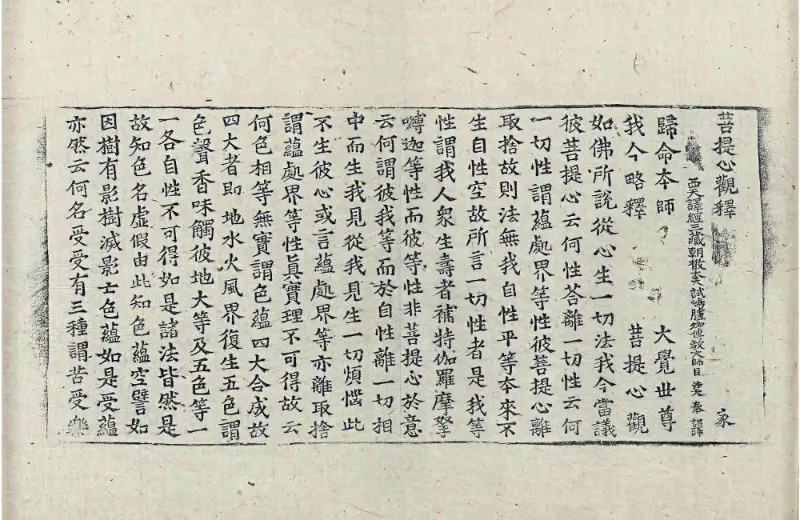 菩提心觀釋
西天譯經三藏朝散大夫試鴻臚卿傳教大師臣 法天 奉 詔譯
歸命本師 大覺世尊
我今略釋 菩提心觀
如佛所說從心生一切法我今當議
彼菩提心云何性荅離一切性云何
一切性謂蘊處界等性彼菩提心離
取捨故則法無我自性平等本來不
生自性空故所言一切性者是我等
性謂我人衆生壽者補特伽羅摩拏
嚩迦等性而彼等性非菩提心於意
云何謂彼我等而於自性離一切相
中而生我見從我見生一切煩惱此
不生彼心或言蘊處界等亦離取捨
謂蘊處界等性眞實理不可得故云
何色相等無實謂色蘊四大合成故
四大者即地水火風界復生五色謂
色聲香味觸彼地大等及五色等一
一各自性不可得如是諸法皆然是
故知色名虛假由此知色蘊空譬如
因樹有影樹滅影亡色蘊如是受蘊
亦然云何名受受有三種謂苦受樂